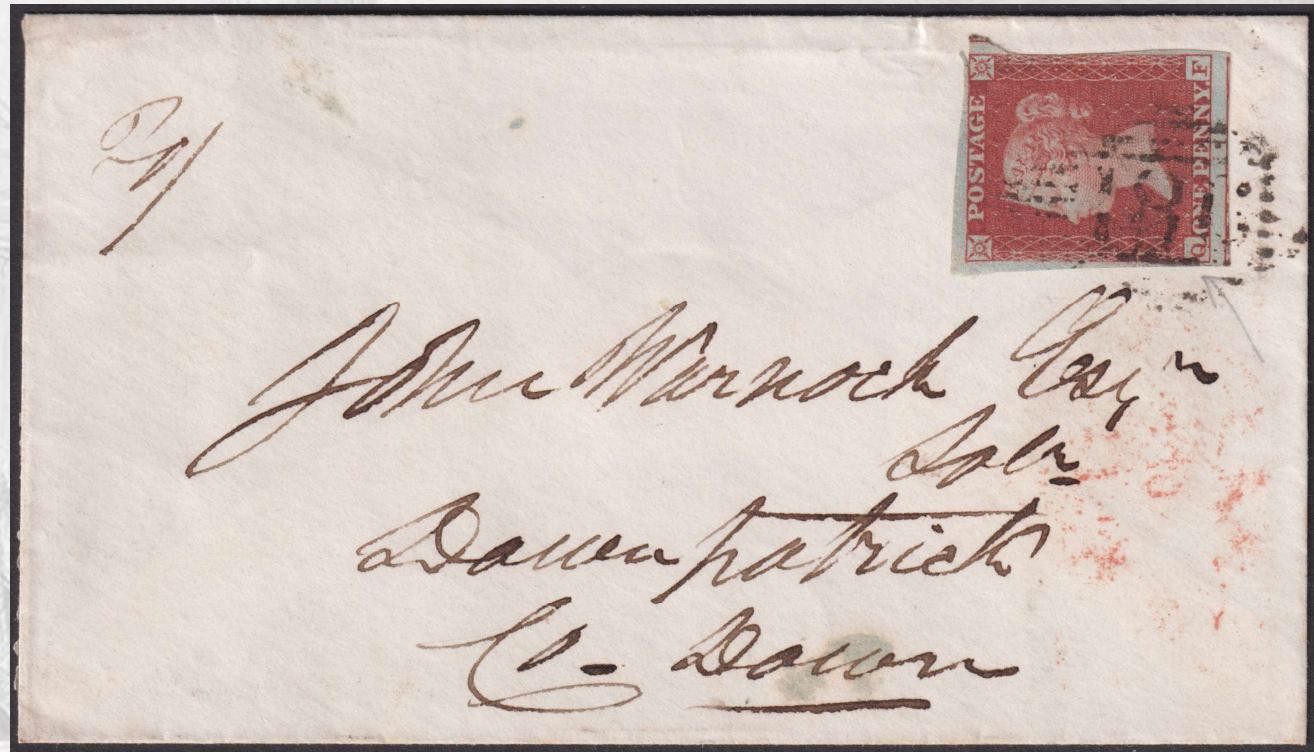 POSTAGE
ONE PENNY.
Q F
John Warnock Esqr
Solr
Downpatrick
Co- Down